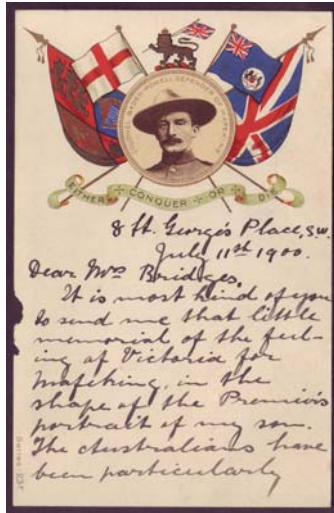 COLONEL BADEN-POWELL DEFENDER OF MAFEKING
EITHER CONQUER OR DIE
8 St. George's Place, S.W.
July 11th 1900.
Dear Mrs Bridges,
It is most kind of you
to send me that little
memorial of the feel-
ing of Victoria for
Mafeking, in the
shape of the Premier's
portrait of my son.
The Australians have
been particularly
Series